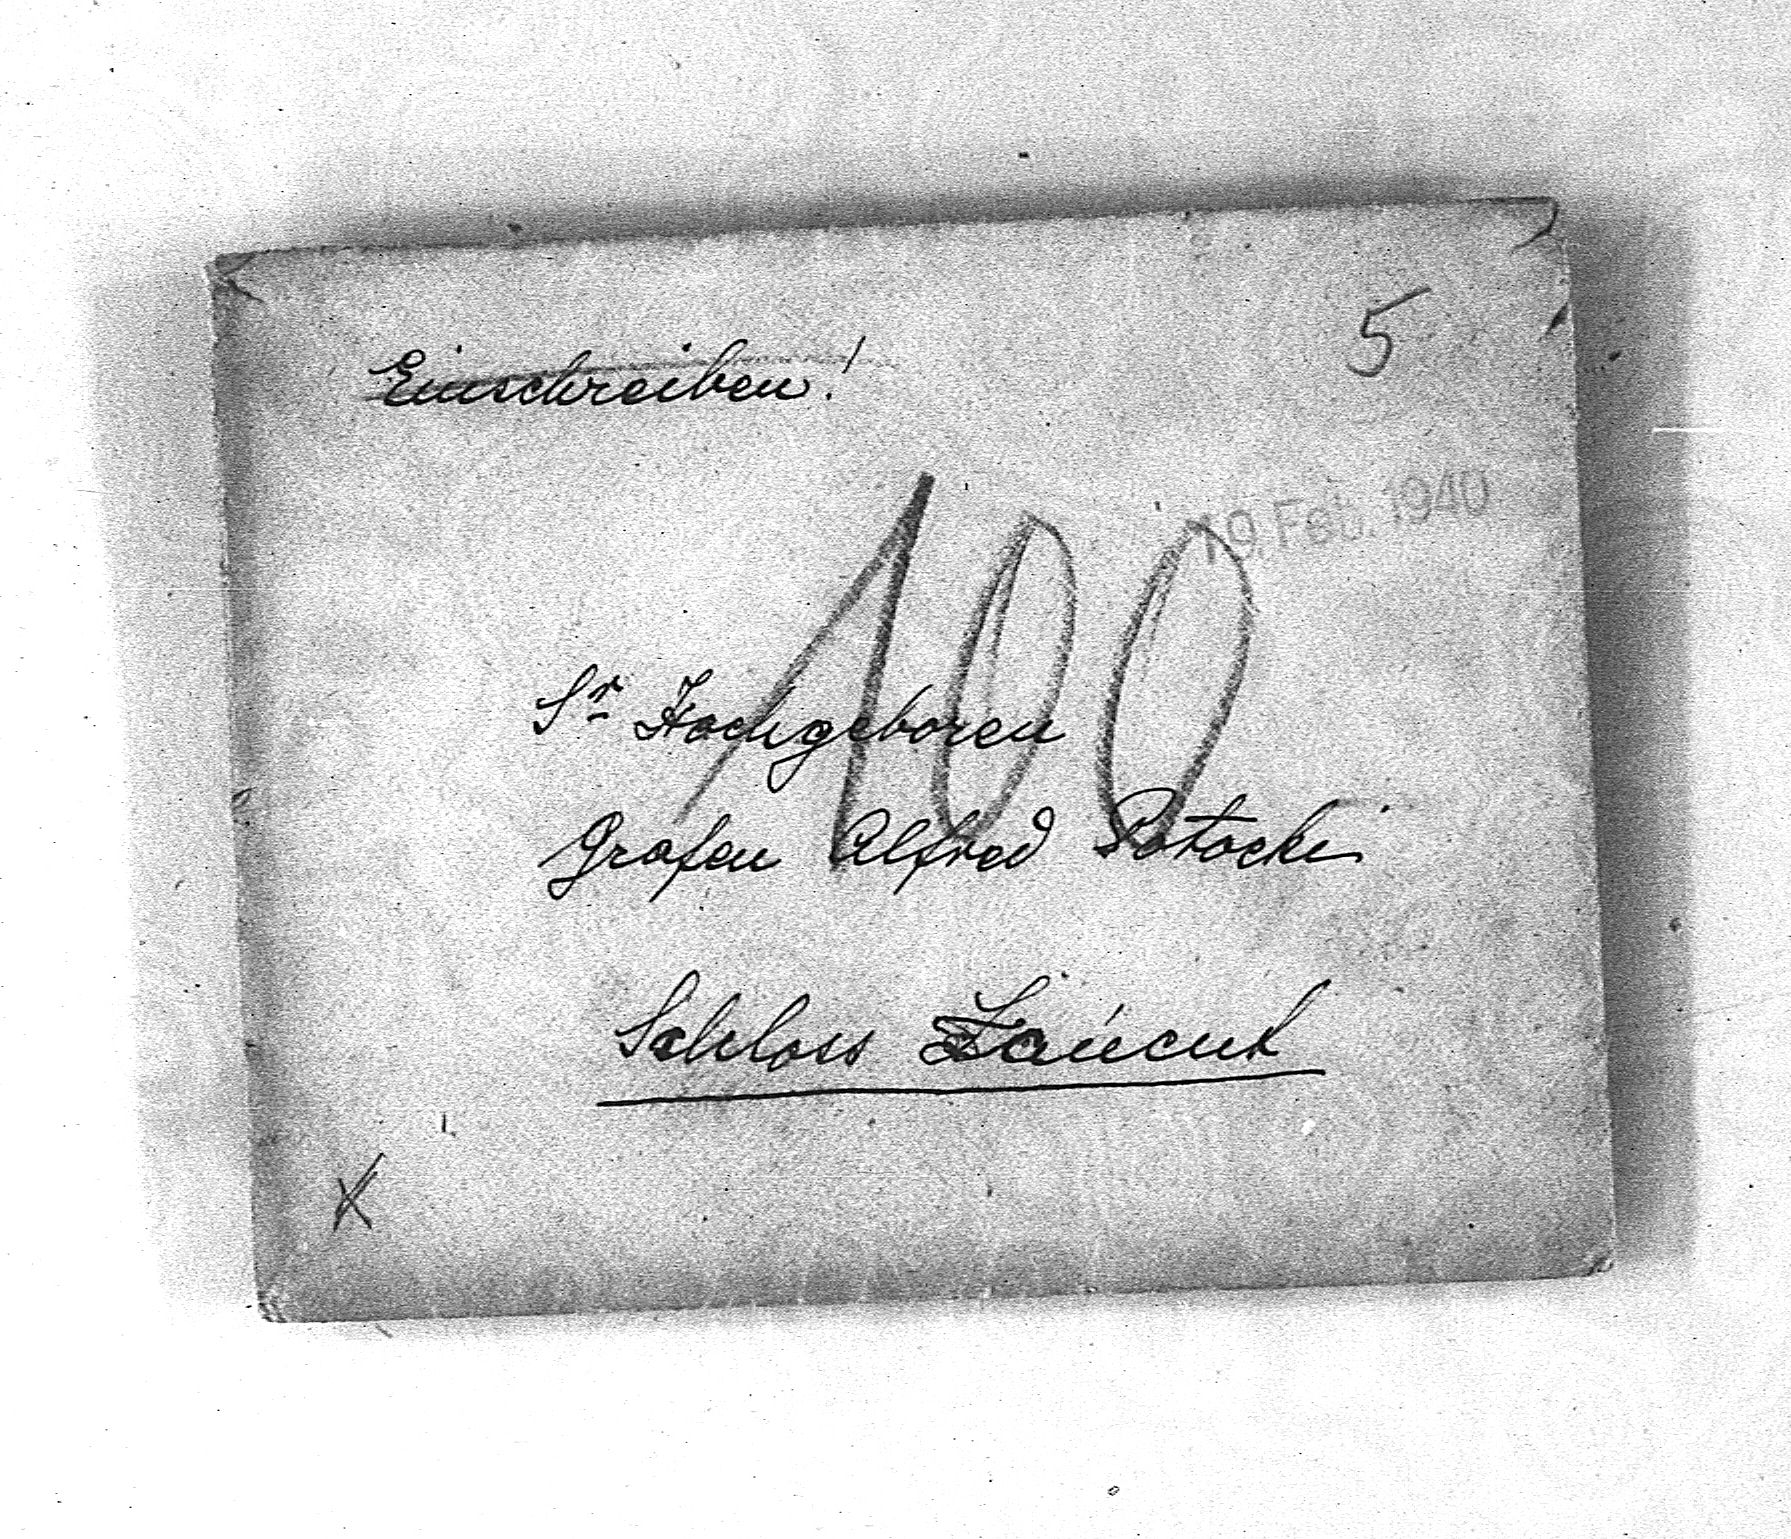 Einschreiben!
5
19. Feb. 1940
100
Sr Hochgeboren
Grafen Alfred Potocki
Schloss Łańcut